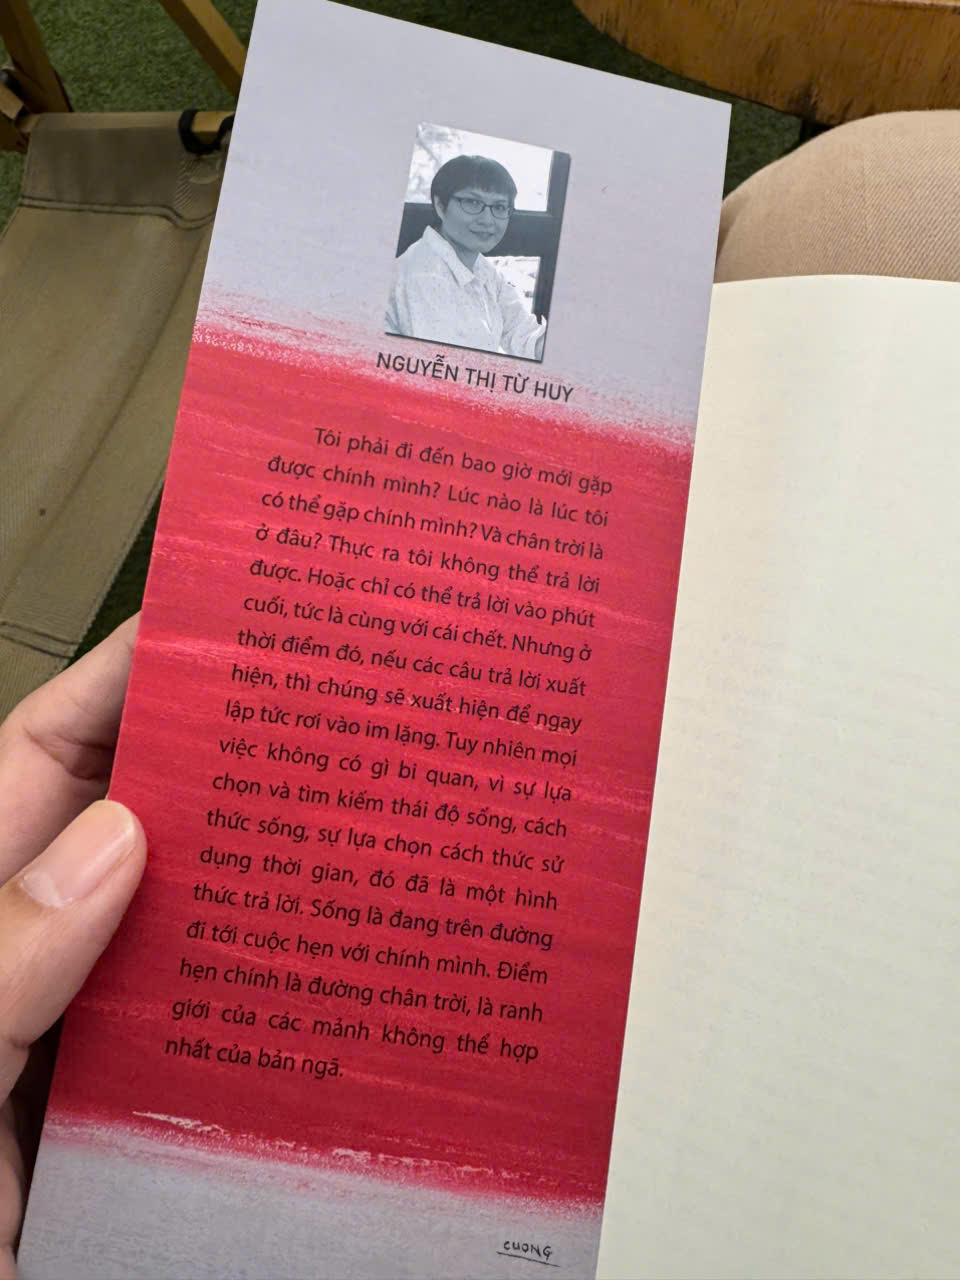 NGUYỄN THỊ TỪ HUY
Tôi phải đi đến bao giờ mới gặp
được chính mình? Lúc nào là lúc tôi
có thể gặp chính mình? Và chân trời là
ở đâu? Thực ra tôi không thể trả lời
được. Hoặc chỉ có thể trả lời vào phút
cuối, tức là cùng với cái chết. Nhưng ở
thời điểm đó, nếu các câu trả lời xuất
hiện, thì chúng sẽ xuất hiện để ngay
lập tức rơi vào im lặng. Tuy nhiên mọi
việc không có gì bi quan, vì sự lựa
chọn và tìm kiếm thái độ sống, cách
thức sống, sự lựa chọn cách thức sử
dụng thời gian, đó đã là một hình
thức trả lời. Sống là đang trên đường
đi tới cuộc hẹn với chính mình. Điểm
hẹn chính là đường chân trời, là ranh
giới của các mảnh không thể hợp
nhất của bản ngã.
CUONG